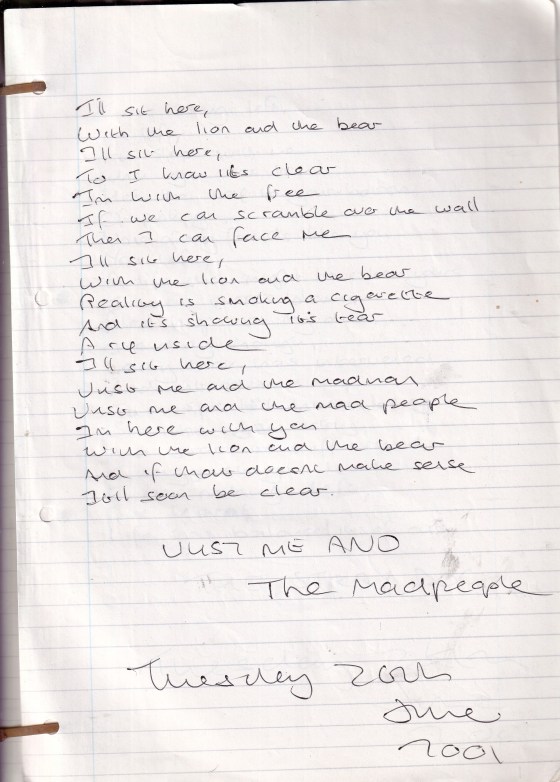 I'll sit here,
With the lion and the bear
I'll sit here,
To I know its clear
Im with the free
If we can scramble over the wall
Then I can face me
I'll sit here,
With the lion and the bear
Reality is smoking a cigarette
And its showing its tear
A rip inside
I'll sit here,
Just me and the madman
Just me and the mad people
Im here with you
With the lion and the bear
And if that doesnt make sense
Itll soon be clear.
JUST ME AND
The Madpeople
Tuesday
June
2001